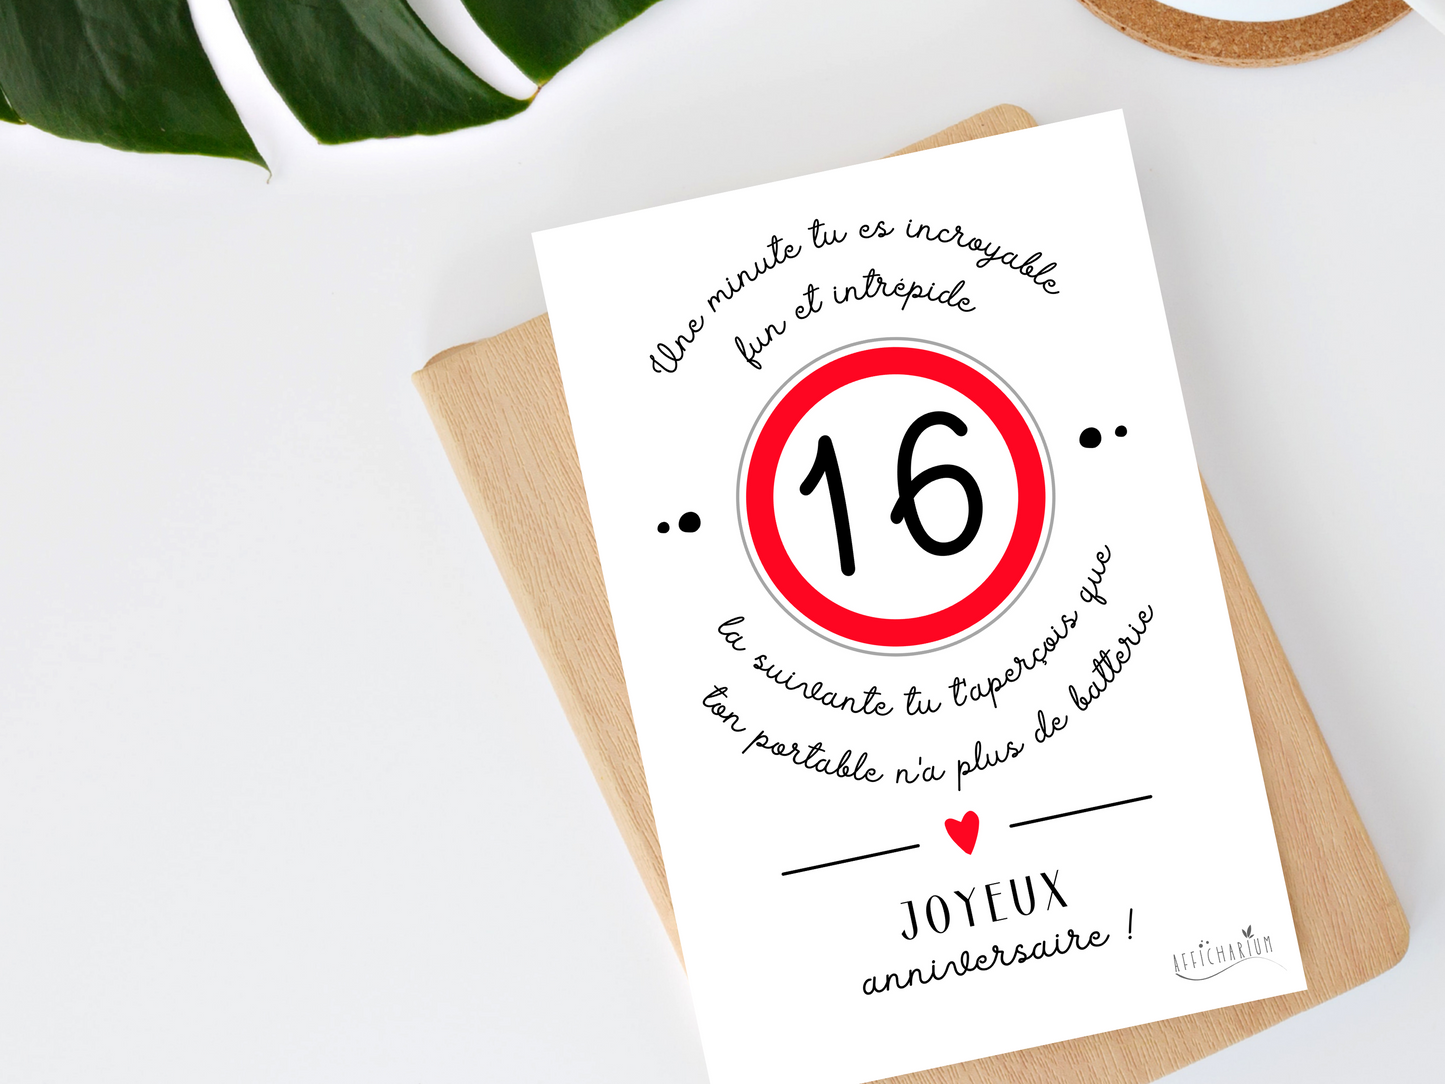 Une minute tu es incroyable
fun et intrépide
16
la suivante tu t'aperçois que
ton portable n'a plus de batterie
JOYEUX
anniversaire !
AFFICHARIUM